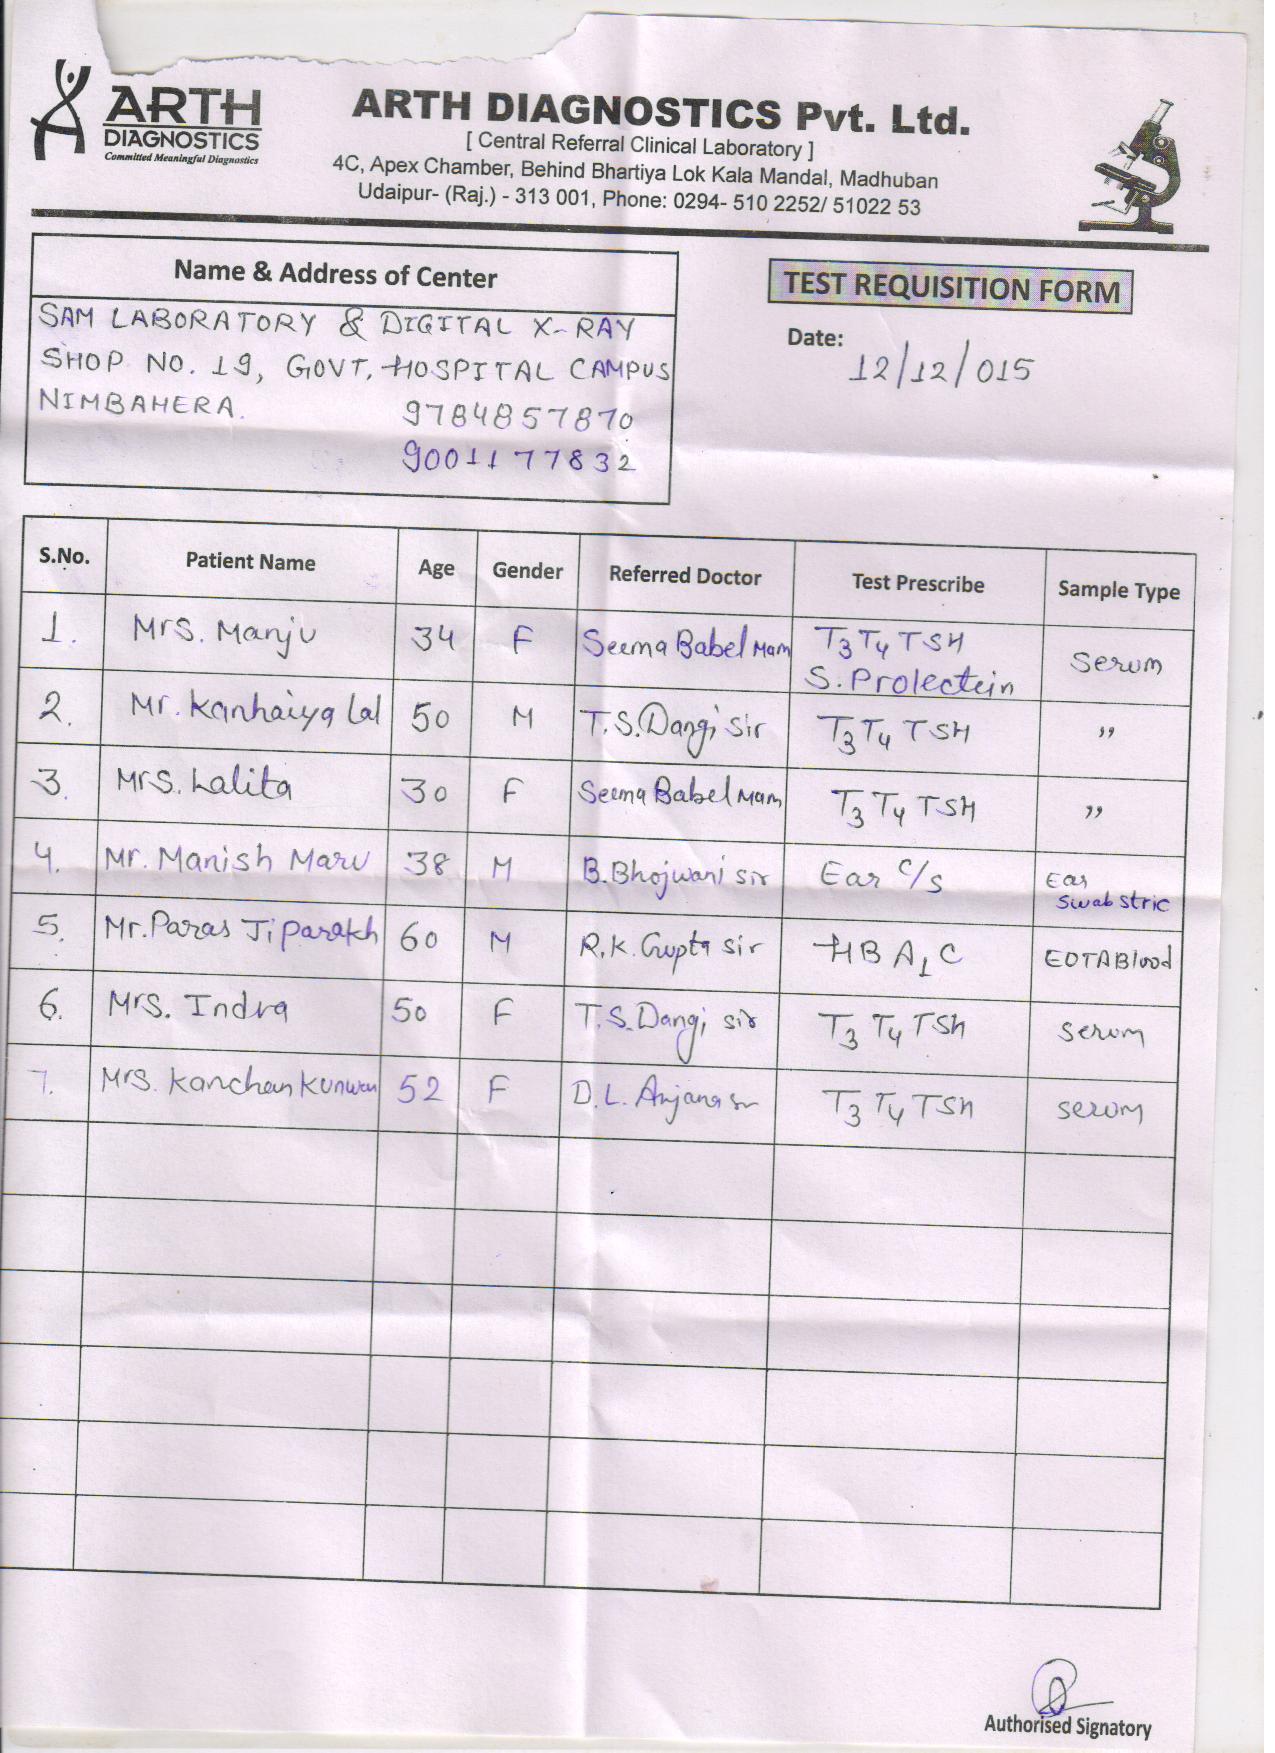 ARTH
DIAGNOSTICS
Committed Meaningful Diagnostics
ARTH DIAGNOSTICS Pvt. Ltd.
[ Central Referral Clinical Laboratory ]
4C, Apex Chamber, Behind Bhartiya Lok Kala Mandal, Madhuban
Udaipur- (Raj.) - 313 001, Phone: 0294- 510 2252/ 51022 53
Name & Address of Center
SAM LABORATORY & DIGITAL X-RAY
SHOP NO. 19, GOVT. HOSPITAL CAMPUS
NIMBAHERA.
9784857870
9001177832
TEST REQUISITION FORM
Date: 12/12/015
S.No. Patient Name Age Gender Referred Doctor Test Prescribe Sample Type
1. Mrs. Manju 34 F Seema Babel Mam T3 T4 TSH Serum
S. Prolectein
2. Mr. Kanhaiya Lal 50 M T.S. Dangi Sir T3 T4 TSH "
3. Mrs. Lalita 30 F Seema Babel Mam T3 T4 TSH "
4. Mr. Manish Maru 38 M B. Bhojwani Sir Ear C/S Ear
Swab Stric
5. Mr. Paras Ji Parakh 60 M R.K. Gupta Sir HBA1C EDTA Blood
6. Mrs. Indra 50 F T.S. Dangi Sir T3 T4 TSH Serum
7. Mrs. Kanchan Kunwar 52 F D.L. Anjana Sir T3 T4 TSH Serum
Authorised Signatory